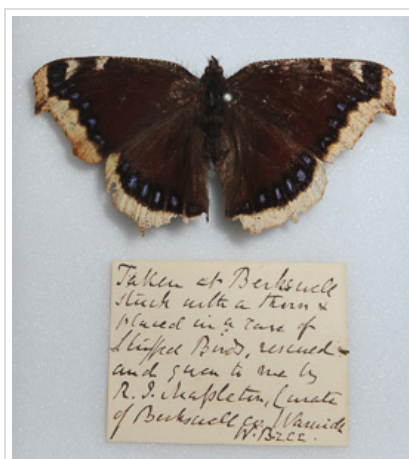 Taken at Berkswell
stuck with a thorn &
placed in a case of
Stuffed Birds, rescued
and given to me by
R. J. Mapleton, Curate
of Berkswell co. Warwick
W. Bree.